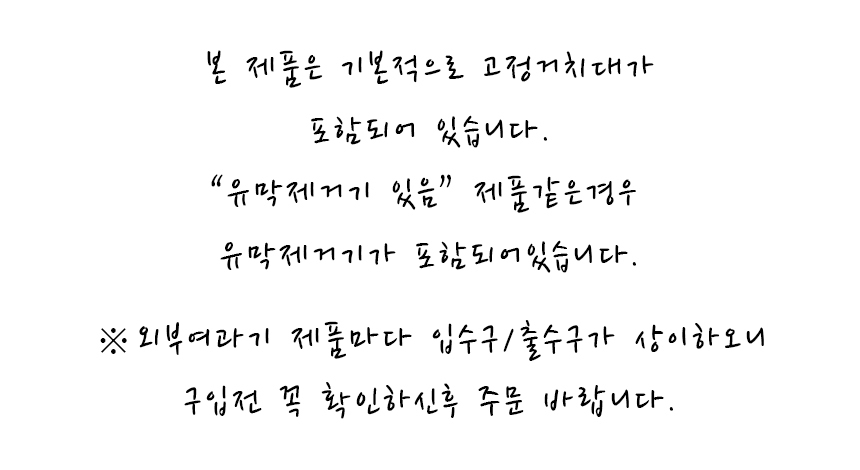 본 제품은 기본적으로 고정거치대가
포함되어 있습니다.
“유막제거기 있음” 제품같은경우
유막제거기가 포함되어있습니다.
※ 외부여과기 제품마다 입수구/출수구가 상이하오니
구입전 꼭 확인하신후 주문 바랍니다.